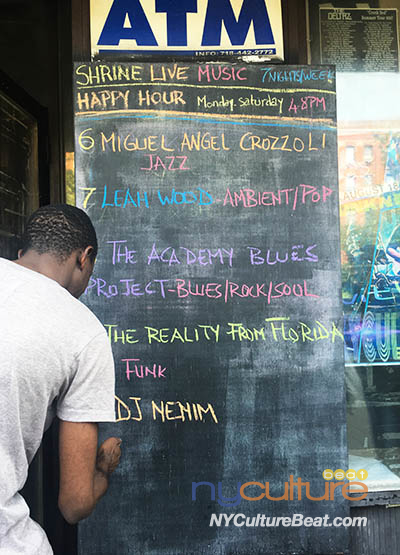 ATM
INFO: 718-442-2772
SHRINE LIVE MUSIC 7NIGHTS/WEEK
HAPPY HOUR Monday-Saturday 4-8PM
6 MIGUEL ANGEL CROZZOLI
JAZZ
7 LEAH WOODS-AMBIENT/POP
THE ACADEMY BLUES
PROJECT-BLUES/ROCK/SOUL
THE REALITY FROM FLORIDA
FUNK
DJ NENIM
AUGUST
nyculture beat
NYCultureBeat.com